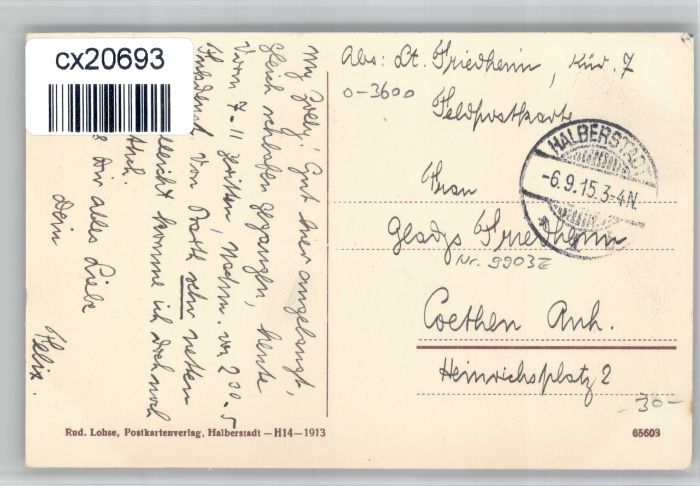 cx20693
My Zolly! Gut hier angelangt,
gleich schlafen gegangen, heute
Vorm 7-11 Reiten, Nachm. von 2³⁰-5
von Rath sehr netten
komme ich doch noch
Dir alles Liebe
Dein
Felix.
Abs: Lt. Friedheim, Kür. 7
0-3600
Feldpostkarte
HALBERSTADT
-6.9.15.3-4N.
Frau
Gladys Friedheim
Nr. 99032
Coethen Anh.
Heinrichsplatz 2
-30-
Rud. Lohse, Postkartenverlag, Halberstadt — H14 — 1913
65609